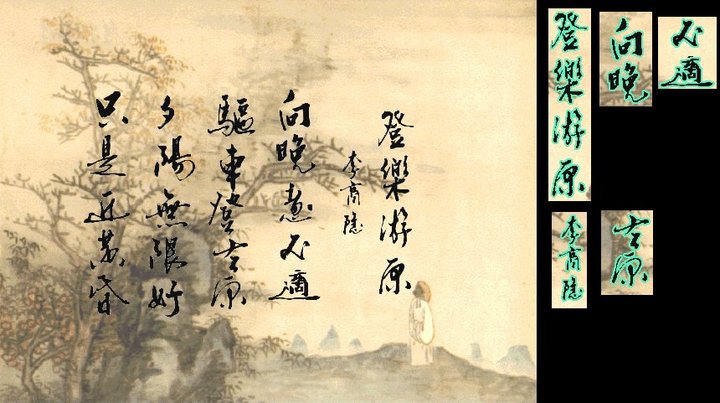 登樂游原
李商隱
向晚意不適
驅車登古原
夕陽無限好
只是近黃昏
登樂游原
李商隱
向晚
古原
不適